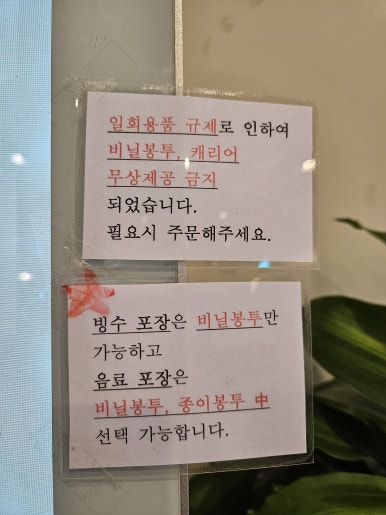 일회용품 규제로 인하여
비닐봉투, 캐리어
무상제공 금지
되었습니다.
필요시 주문해주세요.
빙수 포장은 비닐봉투만
가능하고
음료 포장은
비닐봉투, 종이봉투 中
선택 가능합니다.